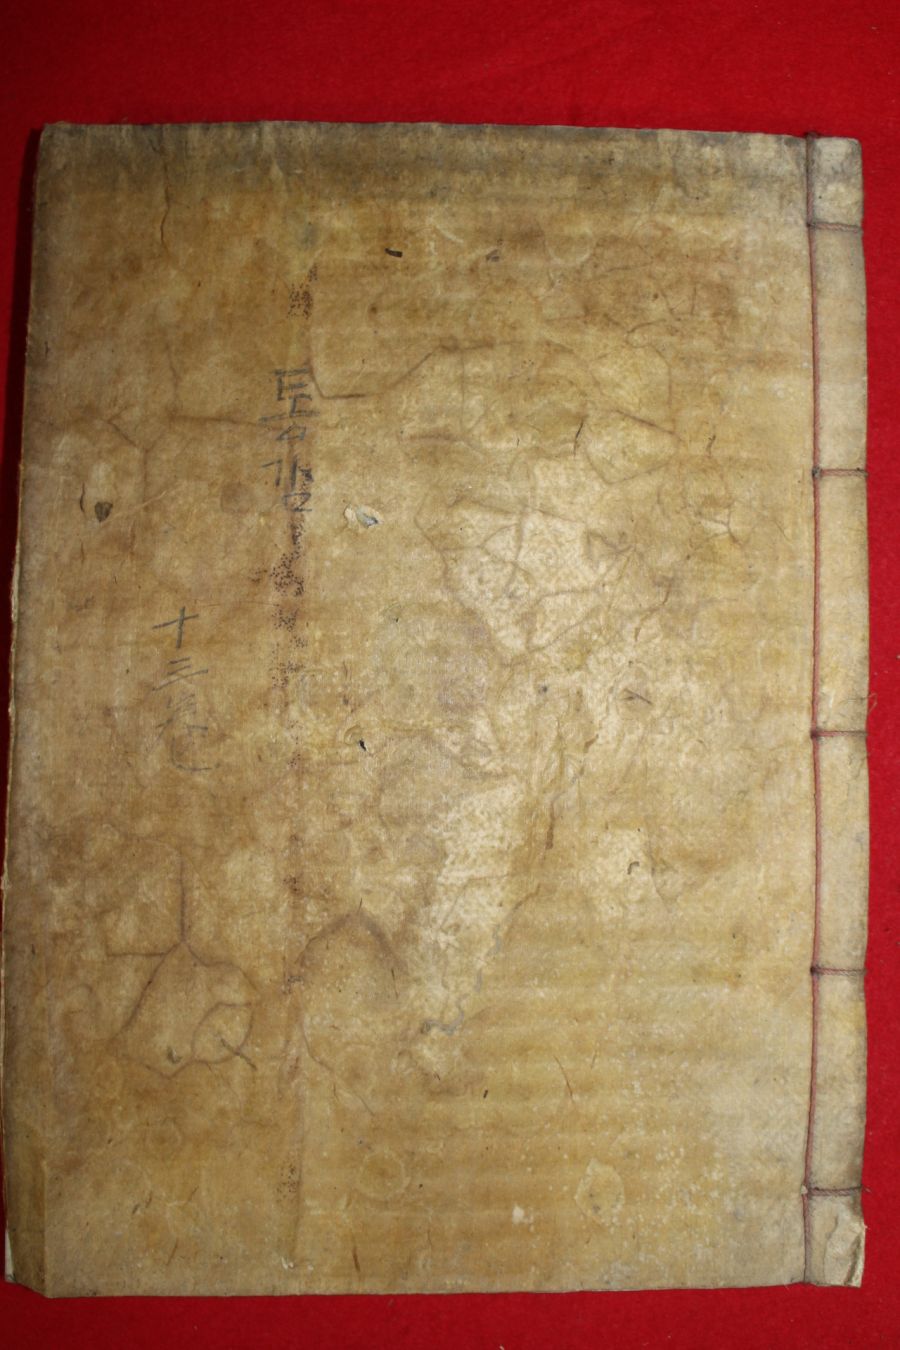 통감
十三卷